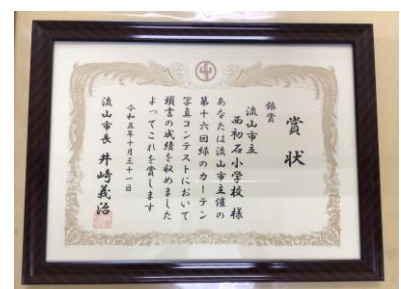 賞状
銀賞
流山市立
西初石小学校様
あなたは流山市主催の
第十六回緑のカーテン
写真コンテストにおいて
頭書の成績を収めました
よってこれを賞します
令和五年十月三十一日
流山市長 井崎義治